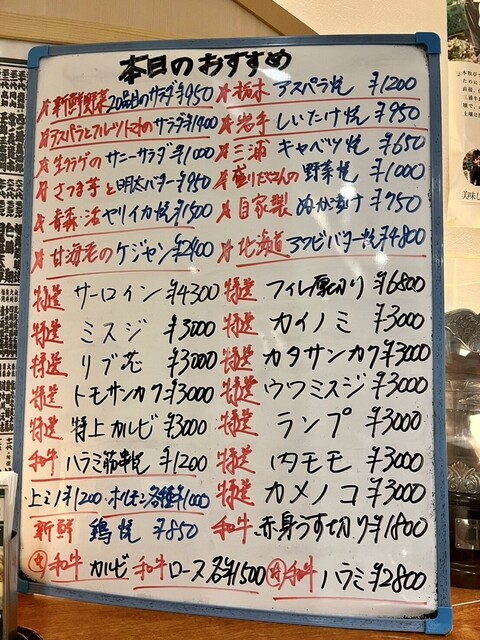 本日のおすすめ
新鮮野菜20品目のサラダ ¥950
アスパラとフルーツトマトのサラダ ¥1400
生クラゲのサニーサラダ ¥1000
さつま芋と明太バター ¥950
青森・活ヤリイカ焼 ¥1500
甘海老のケジャン ¥2400
栃木 アスパラ焼 ¥1200
岩手 しいたけ焼 ¥950
三浦 キャベツ焼 ¥650
盛りだくさんの野菜焼 ¥1000
自家製 ぬか漬け ¥750
北海道 アワビバター焼 ¥4800
特選 サーロイン ¥4300
特選 ミスジ ¥3000
特選 リブ芯 ¥3000
特選 トモサンカク ¥3000
特選 特上カルビ ¥3000
和牛 ハラミ筋串焼 ¥1200
上ミノ ¥1200・ホルモン各種 ¥1000
新鮮 鶏焼 ¥850
特選 フィレ厚切り ¥6800
特選 カイノミ ¥3000
特選 カタサンカク ¥3000
特選 ウワミスジ ¥3000
特選 ランプ ¥3000
特選 内モモ ¥3000
特選 カメノコ ¥3000
和牛 赤身うす切り ¥1800
和牛 カルビ 和牛 ロース 各¥1500
和牛 ハラミ ¥2800